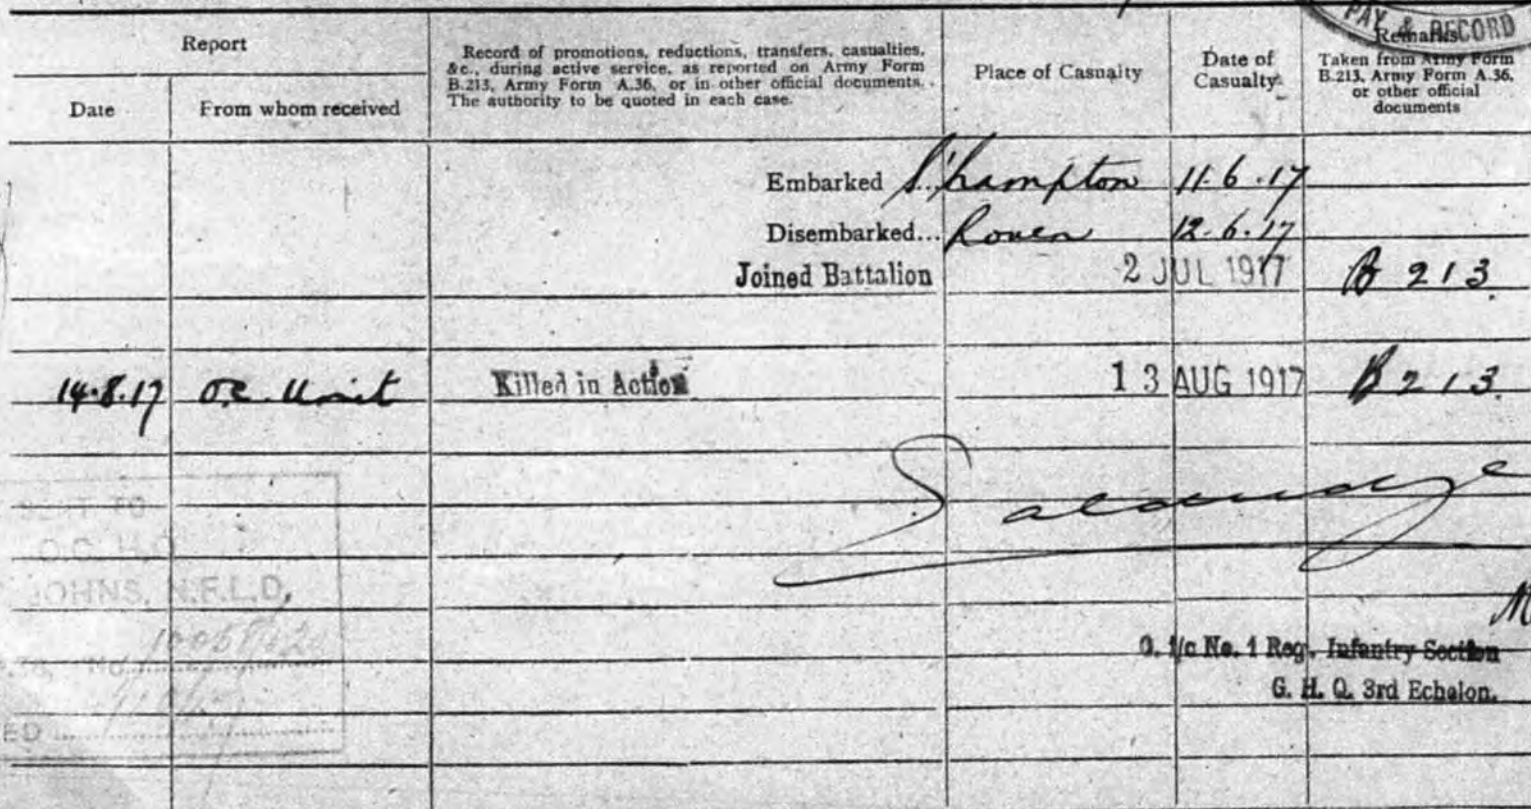 PAY & RECORD
Report
Date
From whom received
Record of promotions, reductions, transfers, casualties,
&c., during active service, as reported on Army Form
B.213, Army Form A.36, or in other official documents.
The authority to be quoted in each case.
Place of Casualty
Date of
Casualty
Remarks
Taken from Army Form
B.213, Army Form A.36,
or other official
documents
Embarked ... S'hampton 11.6.17
Disembarked... Rouen 12.6.17
Joined Battalion 2 JUL 1917 B 213.
14.8.17 O.C. Unit Killed in Action 13 AUG 1917 B 213.
SENT TO
O.C. H.Q.
JOHNS, N.F.L.D,
M
O. i/c No. 1 Reg. Infantry Section
G. H. Q. 3rd Echelon.
ED